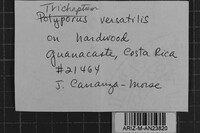 Trichaptum
Polyporus versatilis
on hardwood
Guanacaste, Costa Rica
#21464
J. Carranza-Morse
ARIZ-M-AN23820